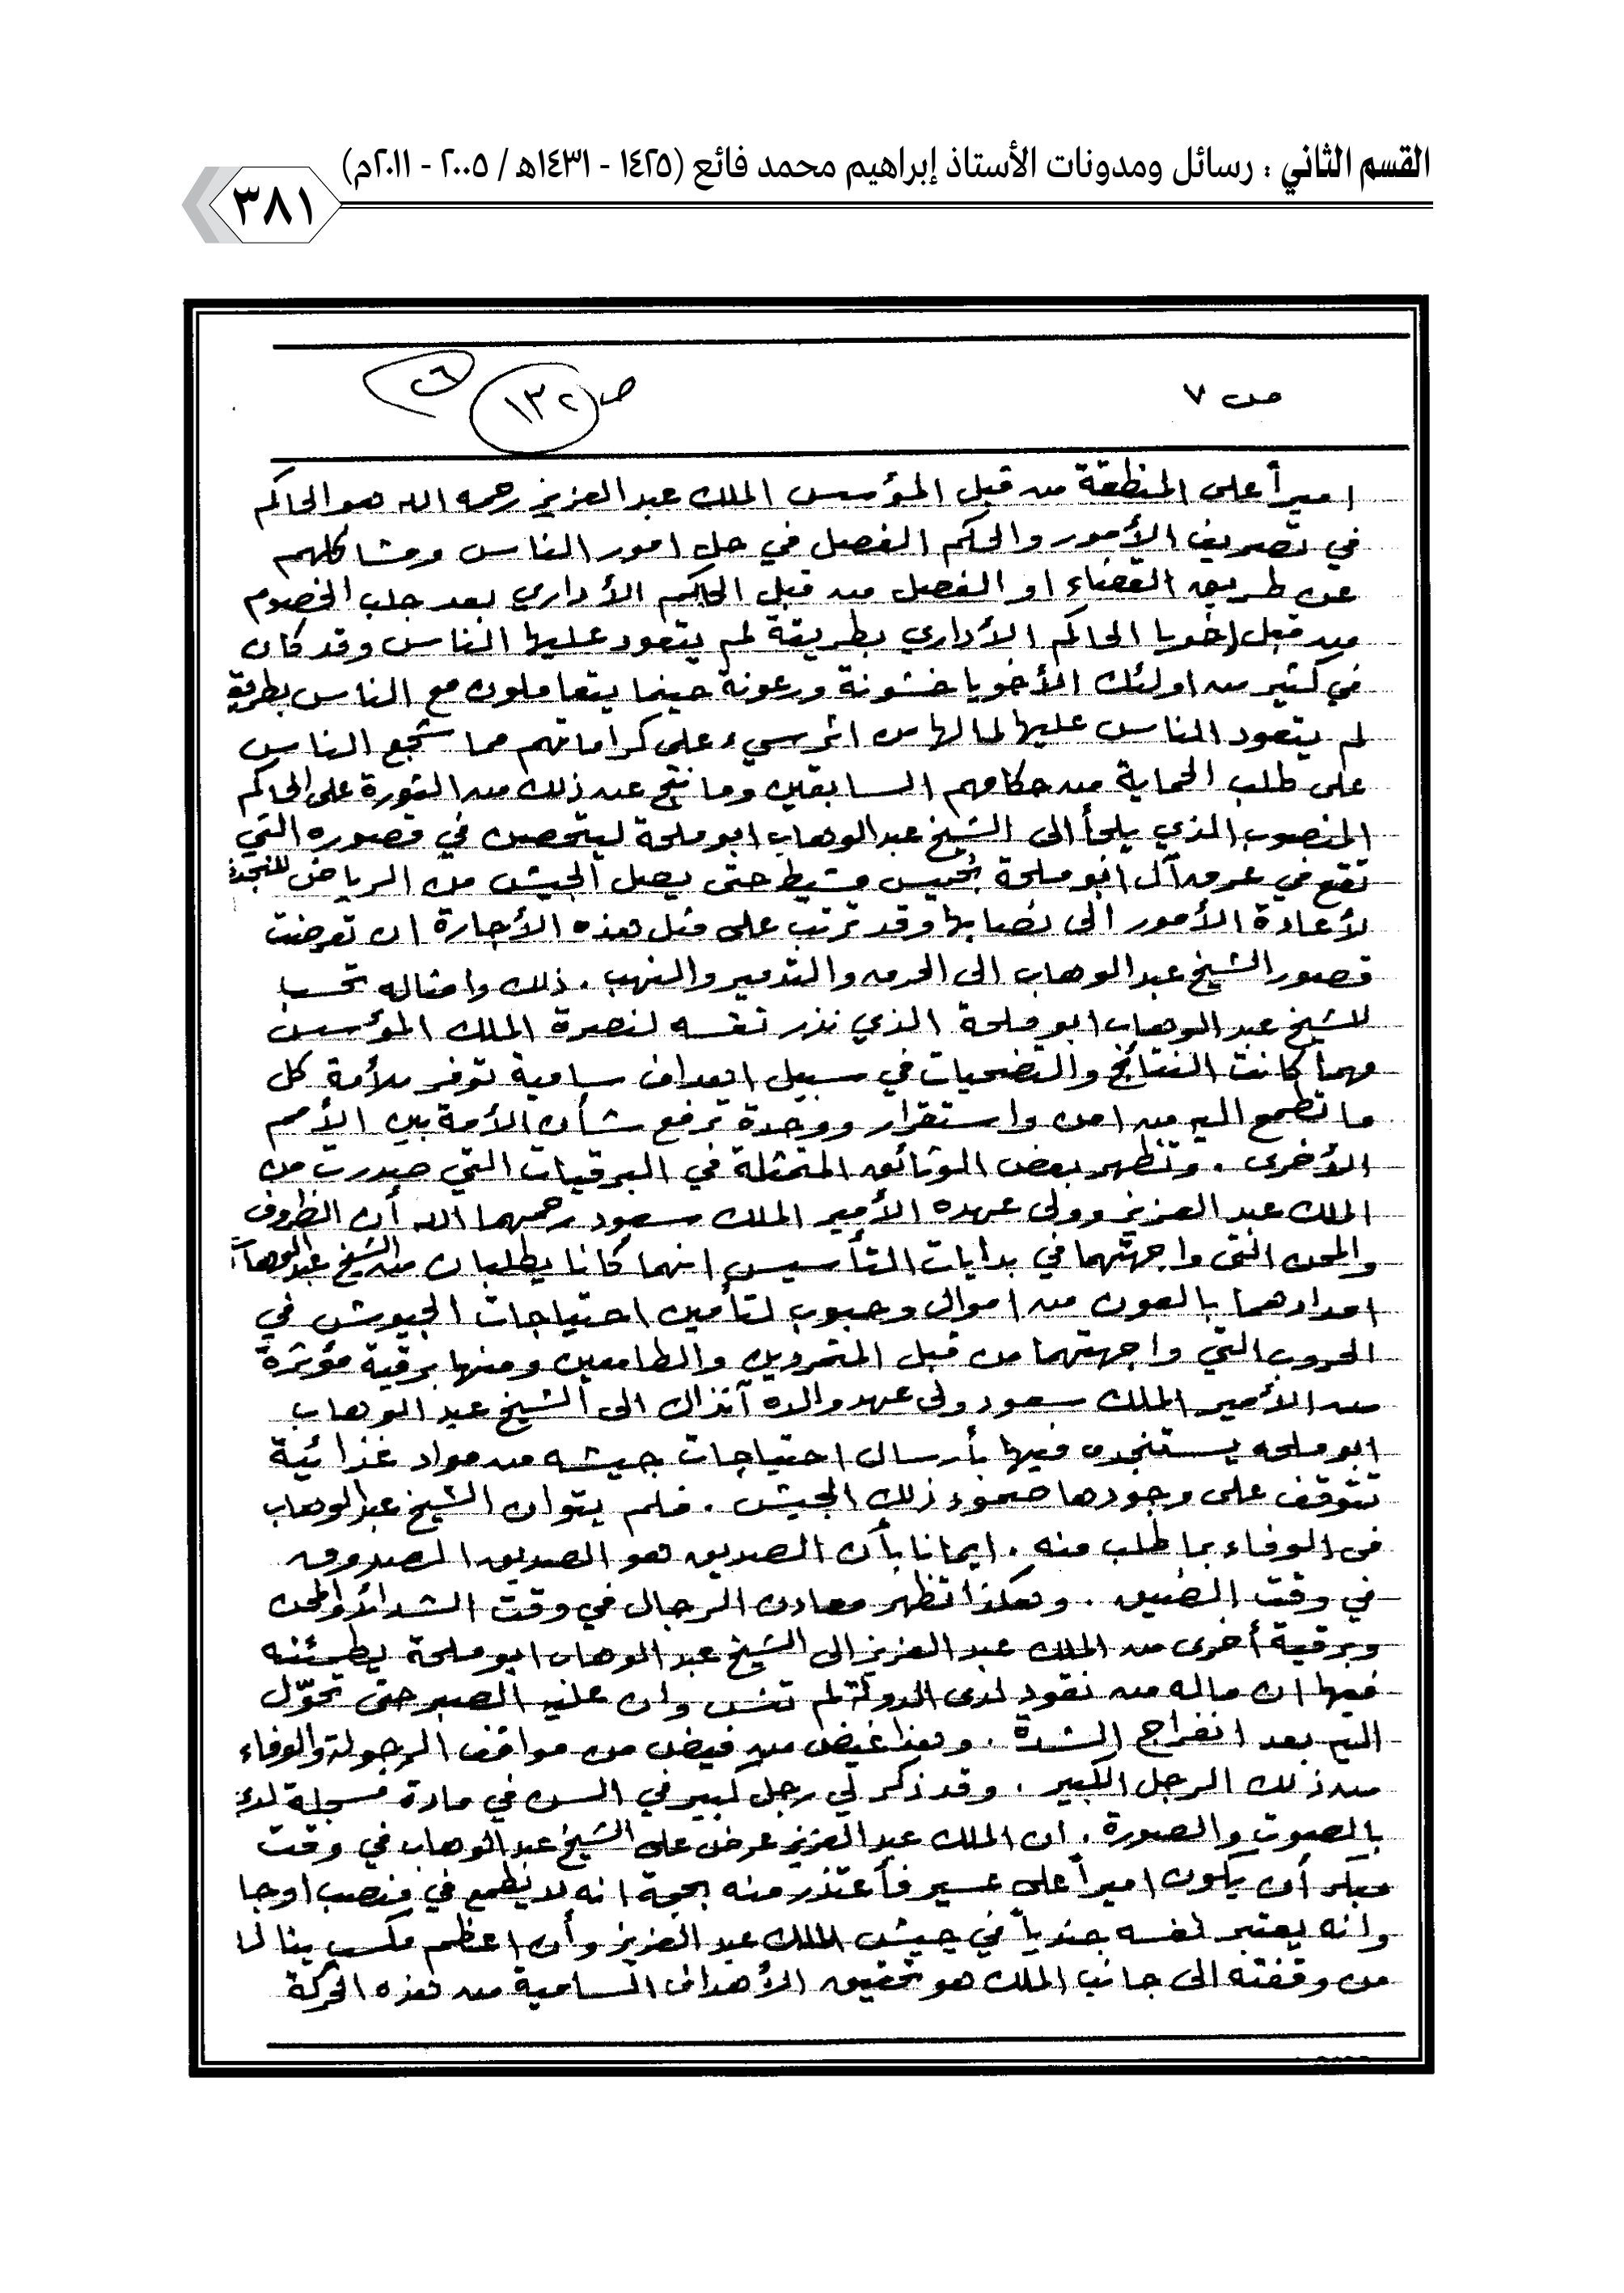 القسم الثاني : رسائل ومدونات الأستاذ إبراهيم محمد فائع (١٤٢٥ - ١٤٣١هـ / ٢٠٠٥ - ٢٠١١م)
٣٨١
ص ٧
ص ١٣٢
اميراً على المنطقة من قبل المؤسس الملك عبد العزيز رحمه الله هو الحاكم
في تصريف الأمور والحكم الفصل في حل امور الناس ومشاكلهم
عن طريق القضاء او الفصل من قبل الحاكم الأداري بعد جلب الخصوم
من قبل اخويا الحاكم الأداري بطريقة لم يتعود عليها الناس وقد كان
في كثير من اولئك الأخويا خشونة ورعونة حينما يتعاملون مع الناس بطريقة
لم يتعود الناس عليها لما لها من اثر سيء على كراماتهم مما شجع الناس
على طلب الحماية من حكامهم السابقين وما نتج عن ذلك من الثورة على الحاكم
المنصوب الذي يلجأ الى الشيخ عبد الوهاب ابو ملحة ليتحصن في قصوره التي
تقع في عرق آل ابو ملحة بخميس مشيط حتى يصل الجيش من الرياض للنجدة
لأعادة الأمور الى نصابها وقد ترتب على مثل هذه الأجارة ان تعرضت
قصور الشيخ عبد الوهاب الى الحرق والتدمير والنهب . ذلك وامثاله تحسب
للشيخ عبد الوهاب ابو ملحة الذي نذر نفسه لنصرة الملك المؤسس
مهما كانت النتائج والتضحيات في سبيل اهداف سامية توفر للأمة كل
ما تطمح اليه من امن واستقرار ووحدة ترفع شأن الأمة بين الأمم
الأخرى . وتظهر بعض الوثائق المتمثلة في البرقيات التي صدرت من
الملك عبد العزيز وولي عهده الأمير الملك سعود رحمهما الله أن الظروف
والمحن التي واجهتهما في بدايات التأسيس انهما كانا يطلبان من الشيخ عبد الوهاب
امدادهما بالعون من اموال وحبوب لتأمين احتياجات الجيوش في
الحروب التي واجهتهما من قبل المتمردين والطامعين ومنها برقية مؤثرة
من الأمير الملك سعود ولى عهد والده آنذاك الى الشيخ عبد الوهاب
ابو ملحه يستنجده فيها بأرسال احتياجات جيشه من مواد غذائية
تتوقف على وجودها صمود ذلك الجيش . فلم يتوان الشيخ عبد الوهاب
في الوفاء بما طلب منه . ايمانا بأن الصديق هو الصديق المصدوق
في وقت الضيق . وهكذا تظهر معادن الرجال في وقت الشدائد والمحن
وبرقية أخرى من الملك عبد العزيز الى الشيخ عبد الوهاب ابو ملحة يطمئنه
فيها ان ماله من نقود لدى الدولة لم تنس وان عليه الصبر حتى تحوّل
اليه بعد انفراج الشدة . وهذا غيض من فيض من مواقف الرجولة والوفاء
من ذلك الرجل الكبير . وقد ذكر لي رجل كبير في السن في مادة مسجلة
بالصوت والصورة . ان الملك عبد العزيز عرض على الشيخ عبد الوهاب في وقت
مبكر أن يكون اميراً على عسير فأعتذر منه بحجة انه لا يطمع في منصب اوجا
وانه يعتبر نفسه جندياً في جيش الملك عبد العزيز وأن اعظم مكسب
من وقفته الى جانب الملك هو تحقيق الأهداف السامية من هذه الحركة